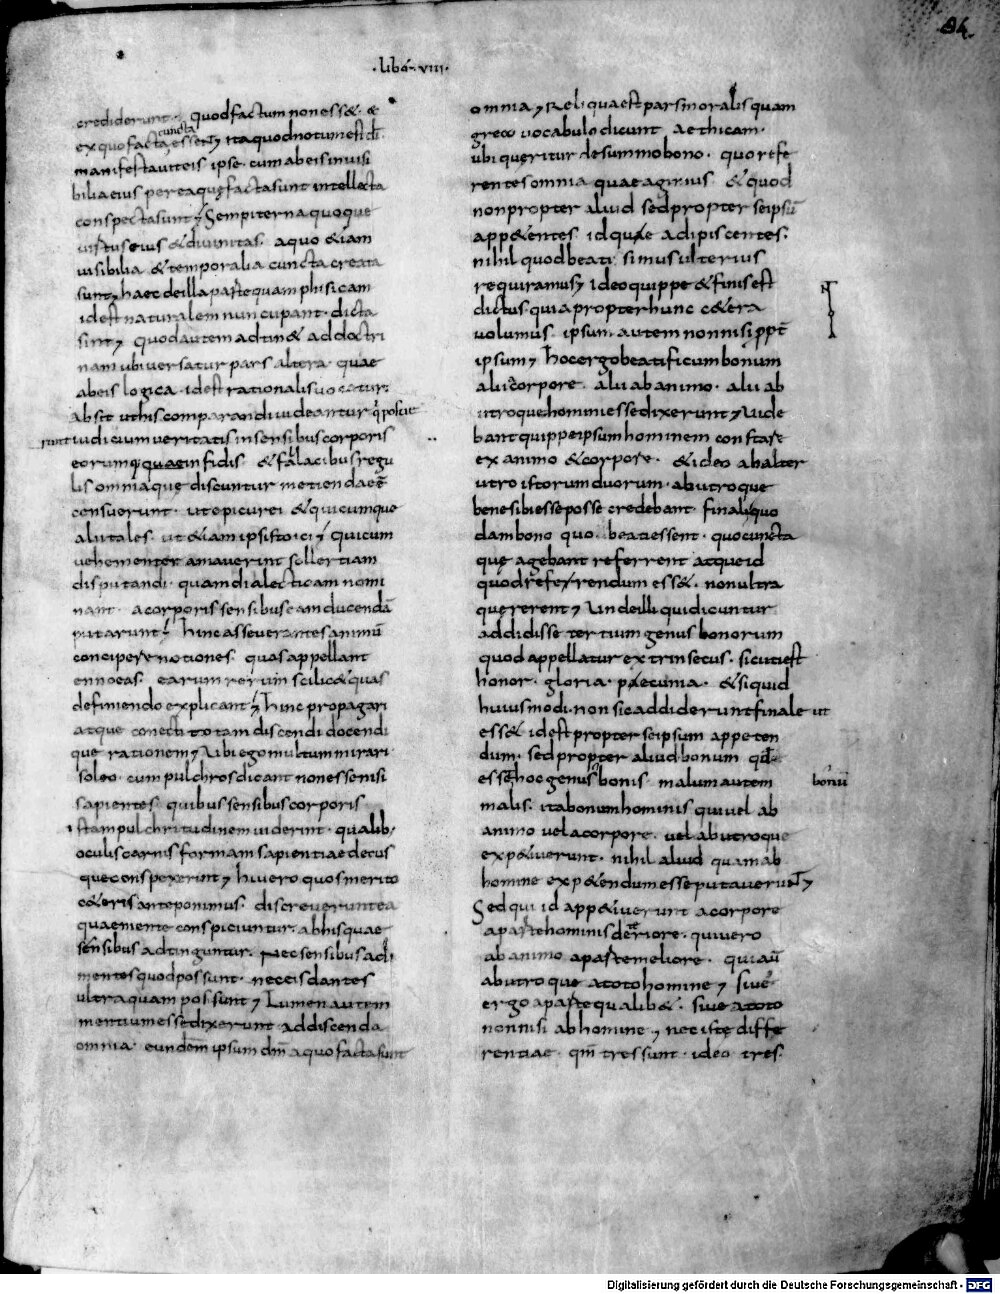 84
· lib̅ · VIII ·
crediderunt · quod factum non ess& · &
ex quo facta cuncta essent; Ita quod notum est d̅i
manifestauit eis ipse · cum ab eis inuisi
bilia eius per ea quę facta sunt intellecta
conspecta sunt; Sempiterna quoque
uirtus eius & diuinitas · a quo &iam
uisibilia & temporalia cuncta creata
sunt; haec de illa parte quam phisicam
id est naturalem nuncupant · dicta
sint; quod autem adtin& ad doctri
nam ubi uersatur pars altera · quae
ab eis logica · id est rationalis uocatur ·
absit ut his comparandi uideantur qui posue
runt iudicium ueritatis in sensibus corporis
eorumque quam infidis · & fallacibus regu
lis omnia quę discuntur metienda ee̅
censuerunt · ut epicurei & quicumque
alii tales · ut &iam ipsi stoici; qui cum
uehementer amauerint sollertiam
disputandi · quam dialecticam nomi
nant · a corporis sensibus eam ducendā
putarunt; hinc asseuerantes animū
concipere notiones · quas appellant
ennoeas · earum rerum scilic& quas
definiendo explicant; hinc propagari
atque conecti totam discendi docendi
que rationem; Ubi ego multum mirari
soleo · cum pulchros dicant non esse nisi
sapientes · quibus sensibus corporis
istam pulchritudinem uiderint · qualib;
oculis carnis formam sapientiae decus
que conspexerint; hi uero quos merito
c&eris anteponimus · discreuerunt ea
quae mente conspiciuntur · ab his quae
sensibus adtinguntur · Nec sensibus adi
mentes quod possunt · nec eis dantes
ultra quam possunt; Lumen autem
mentium esse dixerunt ad discenda
omnia · eundem ipsum dm̅ a quo facta sunt
omnia; Reliqua est pars moralis quam
greco uocabulo dicunt aethicam ·
ubi queritur de summo bono · quo refe
rentes omnia quae agimus · & quod
non propter aliud sed propter se ipsū
app&entes id quae adipiscentes ·
nihil quod beati simus ulterius
requiramus; ideo quippe & finis est
dictus · quia propter hunc c&era
uolumus · ipsum autem non nisi ppt̅
ipsum; hoc ergo beatificum bonum
alii corpore · alii ab animo · alii ab
utroque homini esse dixerunt; Uide
bant quippe ipsum hominem constare
ex animo & corpore · & ideo ab alter
utro istorum duorum · ab utroque
bene sibi esse posse credebant · finali quo
dam bono quo beati essent · quo cuncta
quę agebant referrent atque id
quod referrendum ess& · non ultra
quererent; Unde illi qui dicuntur
addidisse tertium genus bonorum
quod appellatur extrinsecus · sicuti est
honor · gloria · pecunia · & si quid
huiusmodi · non sic addiderunt finale ut
ess& id est propter se ipsum appeten
dum · sed propter aliud bonum qd̅
esse hoc genus bonis · malum autem
bonū
malis · ita bonum hominis qui uel ab
animo uel a corpore · uel ab utroque
exp&iuerunt · nihil aliud quam ab
homine exp&endum esse putauerunt;
Sed qui id app&iuerunt a corpore
a parte hominis deteriore · qui uero
ab animo a parte meliore · qui aū
ab utroque a toto homine; siue
ergo a parte qualib& · siue a toto
non nisi ab homine; nec iste diffe
rentiae · qm̅ tres sunt · ideo tres ·
Digitalisierung gefördert durch die Deutsche Forschungsgemeinschaft - DFG